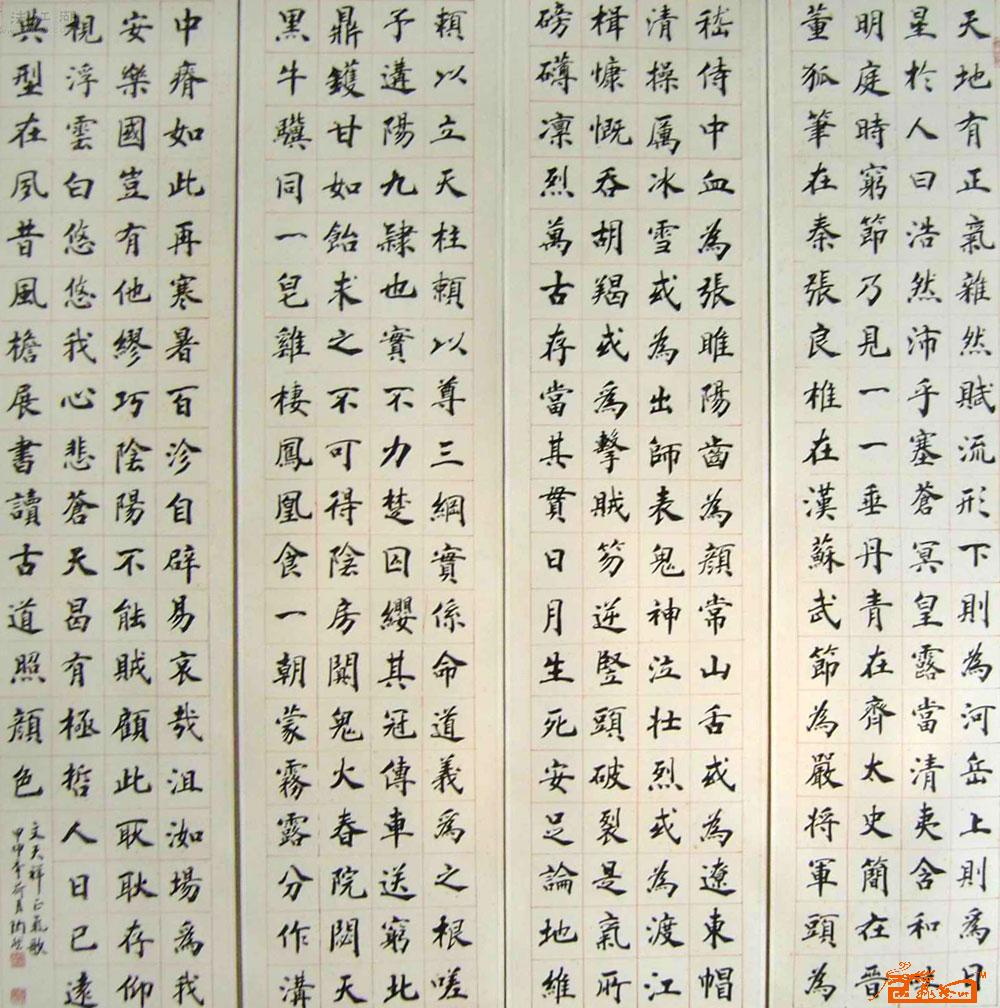 天地有正氣雜然賦流形下則為河岳上則為日
星於人曰浩然沛乎塞蒼冥皇露當清夷含和
明庭時窮節乃見一一垂丹青在齊太史簡在晉
董狐筆在秦張良椎在漢蘇武節為嚴將軍頭為
嵇侍中血為張睢陽齒為顏常山舌或為遼東帽
清操厲冰雪或為出師表鬼神泣壯烈或為渡江
楫慷慨吞胡羯或為擊賊笏逆豎頭破裂是氣所
磅礴凜烈萬古存當其貫日月生死安足論地維
賴以立天柱賴以尊三綱實係命道義為之根嗟
予遘陽九隸也實不力楚囚纓其冠傳車送窮北
鼎鑊甘如飴求之不可得陰房闃鬼火春院閟天
黑牛驥同一皂雞棲鳳凰食一朝蒙霧露分作溝
中瘠如此再寒暑百沴自辟易哀哉沮洳場為我
安樂國豈有他繆巧陰陽不能賊顧此耿耿存仰
視浮雲白悠悠我心悲蒼天曷有極哲人日已遠
典型在夙昔風檐展書讀古道照顏色
文天祥正氣歌
甲申年